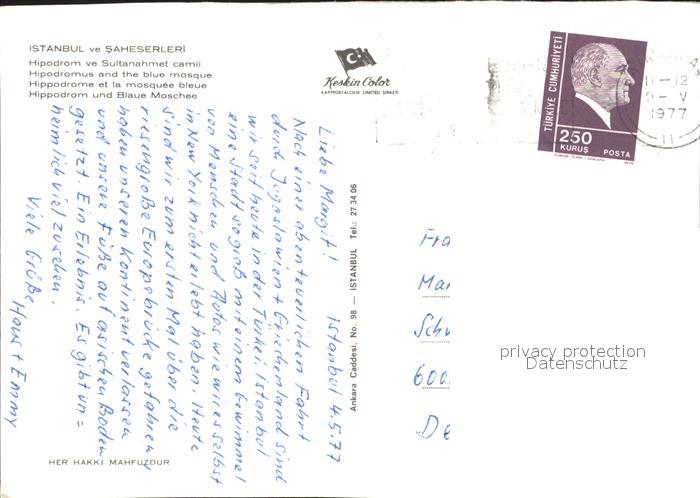 İSTANBUL ve ŞAHESERLERİ
Hipodrom ve Sultanahmet camii
Hipodromus and the blue mosque
Hippodrome et la mosquée bleue
Hippodrom und Blaue Moschee
Keskin Color
KARTPOSTALCILIK LIMITED ŞIRKETI
TÜRKİYE CUMHURİYETİ
250
KURUŞ
POSTA
1977
Ankara Caddesi. No. 98 — ISTANBUL Tel.: 27 34 06
Istanbul 4.5.77
Liebe Margit!
Nach einer abenteuerlichen Fahrt
durch Jugoslawien + Griechenland sind
wir seit heute in der Türkei. Istanbul
eine Stadt so groß mit einem Gewimmel
von Menschen und Autos wie wir es selbst
in New York nicht erlebt haben. Heute
sind wir zum ersten Mal über die
riesengroße Europabrücke gefahren,
haben unseren Kontinent verlassen
und unsere Füße auf asischen Boden
gesetzt. Ein Erlebnis. Es gibt un=
heimlich viel zu sehen.
Viele Grüße
Hans + Emmy
Fra
Mar
Schw
600
De
privacy protection
Datenschutz
HER HAKKI MAHFUZDUR